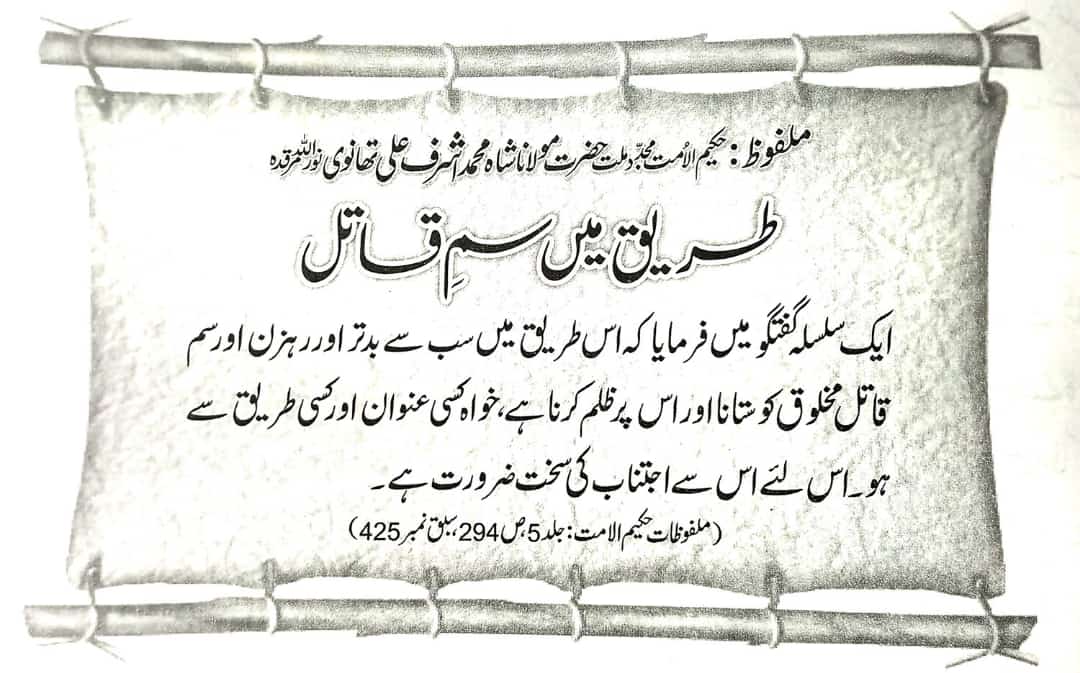 ملفوظ: حکیم الامت مجدّد ملت حضرت مولانا شاہ محمد اشرف علی تھانوی نور اللہ مرقدہ
طریق میں سمِ قاتل
ایک سلسلہ گفتگو میں فرمایا کہ اس طریق میں سب سے بدتر اور رہزن اور سم
قاتل مخلوق کو ستانا اور اس پر ظلم کرنا ہے، خواہ کسی عنوان اور کسی طریق سے
ہو۔ اس لئے اس سے اجتناب کی سخت ضرورت ہے۔
(ملفوظات حکیم الامت: جلد 5، ص 294، سبق نمبر 425)